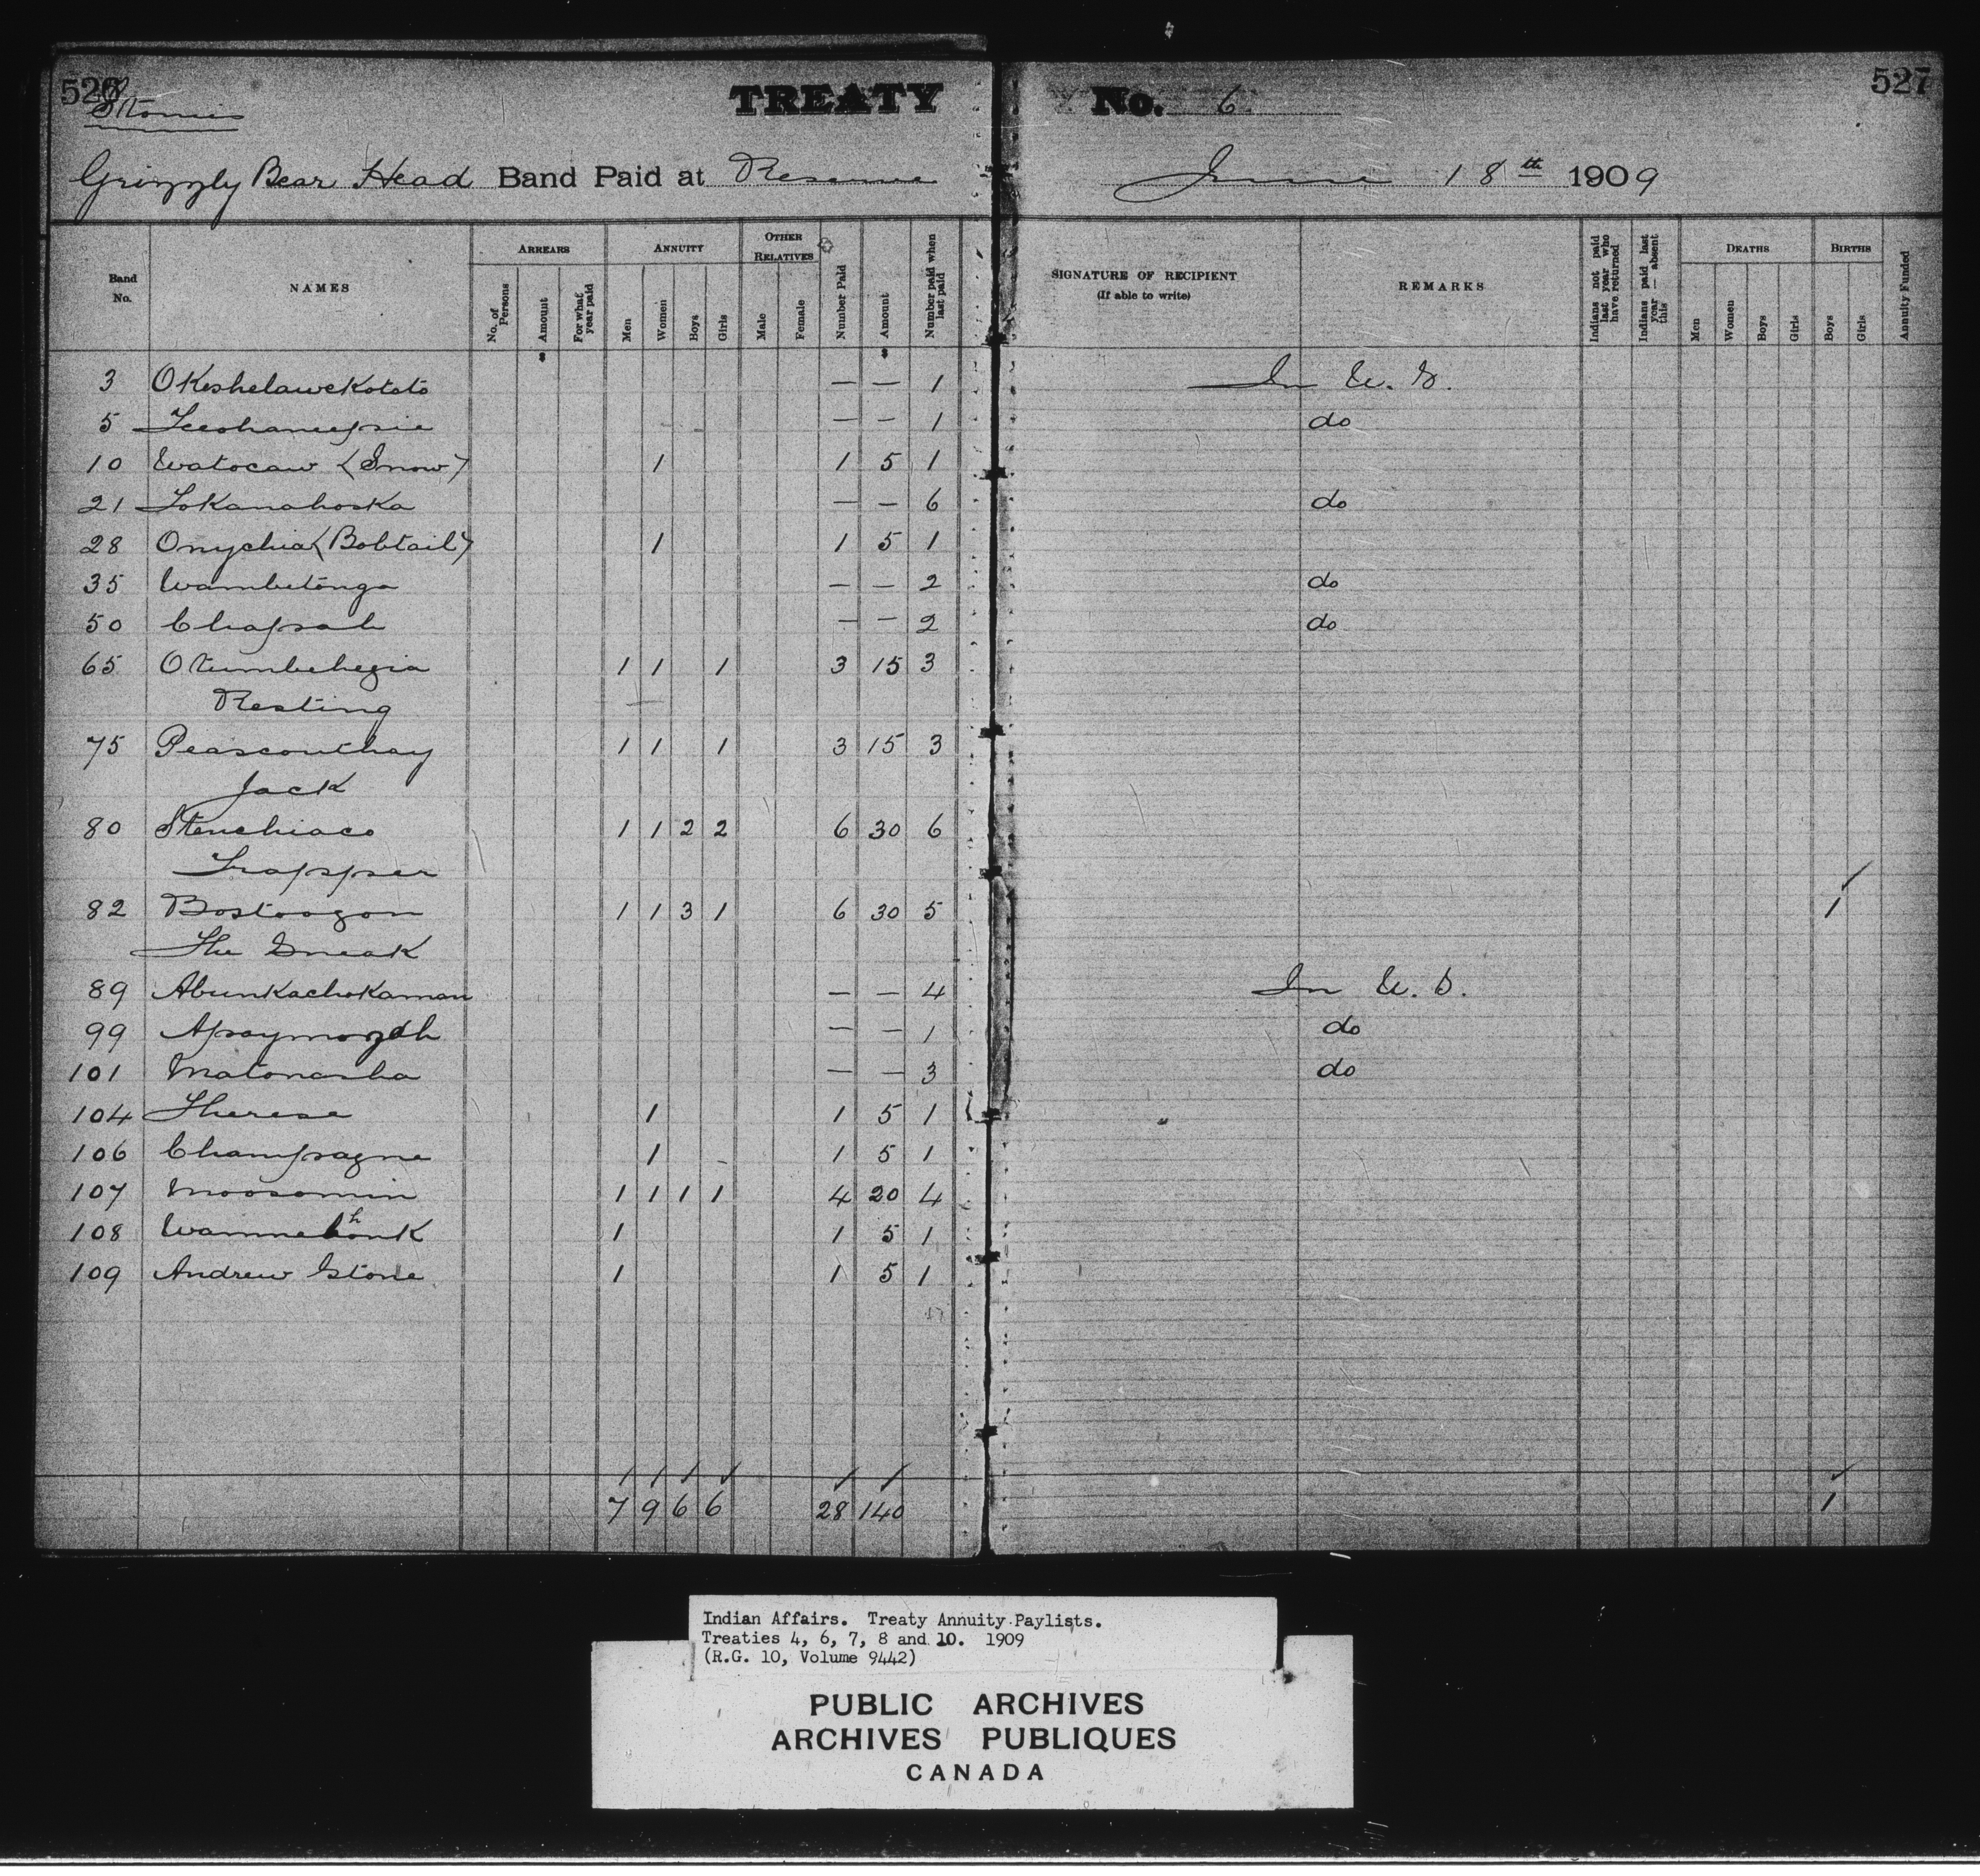 526 TREATY No. 6 527
Stonies
Grizzly Bear Head Band Paid at Reserve June 18th 1909
Band No. NAMES ARREARS No. of Persons Amount For what year paid ANNUITY Men Women Boys Girls OTHER RELATIVES Male Female Number Paid Amount Number paid when last paid SIGNATURE OF RECIPIENT (If able to write) REMARKS Indians not paid last year who have returned Indians paid last year — absent this DEATHS Men Women Boys Girls BIRTHS Boys Girls Annuity Funded
3 — — 1 In U. S.
5 — — 1 do
10 Watocaw (Snow) 1 1 5 1
21 — — 6 do
28 Onychia (Bobtail) 1 1 5 1
35 Wambetonga — — 2 do
50 Chapsah — — 2 do
65 1 1 1 3 15 3
Resting
75 Peasconthay 1 1 1 3 15 3
Jack
80 Stenchiaco 1 1 2 2 6 30 6
Trapper
82 Bostoogon 1 1 3 1 6 30 5 1
The Sneak
89 Abunkachokaman — — 4 In U. S.
99 — — 1 do
101 — — 3 do
104 Therese 1 1 5 1
106 Champagne 1 1 5 1
107 Moosomin 1 1 1 1 4 20 4
108 1 1 5 1
109 Andrew Stone 1 1 5 1
7 9 6 6 28 140 1
Indian Affairs. Treaty Annuity Paylists.
Treaties 4, 6, 7, 8 and 10. 1909
(R.G. 10, Volume 9442)
PUBLIC ARCHIVES
ARCHIVES PUBLIQUES
CANADA